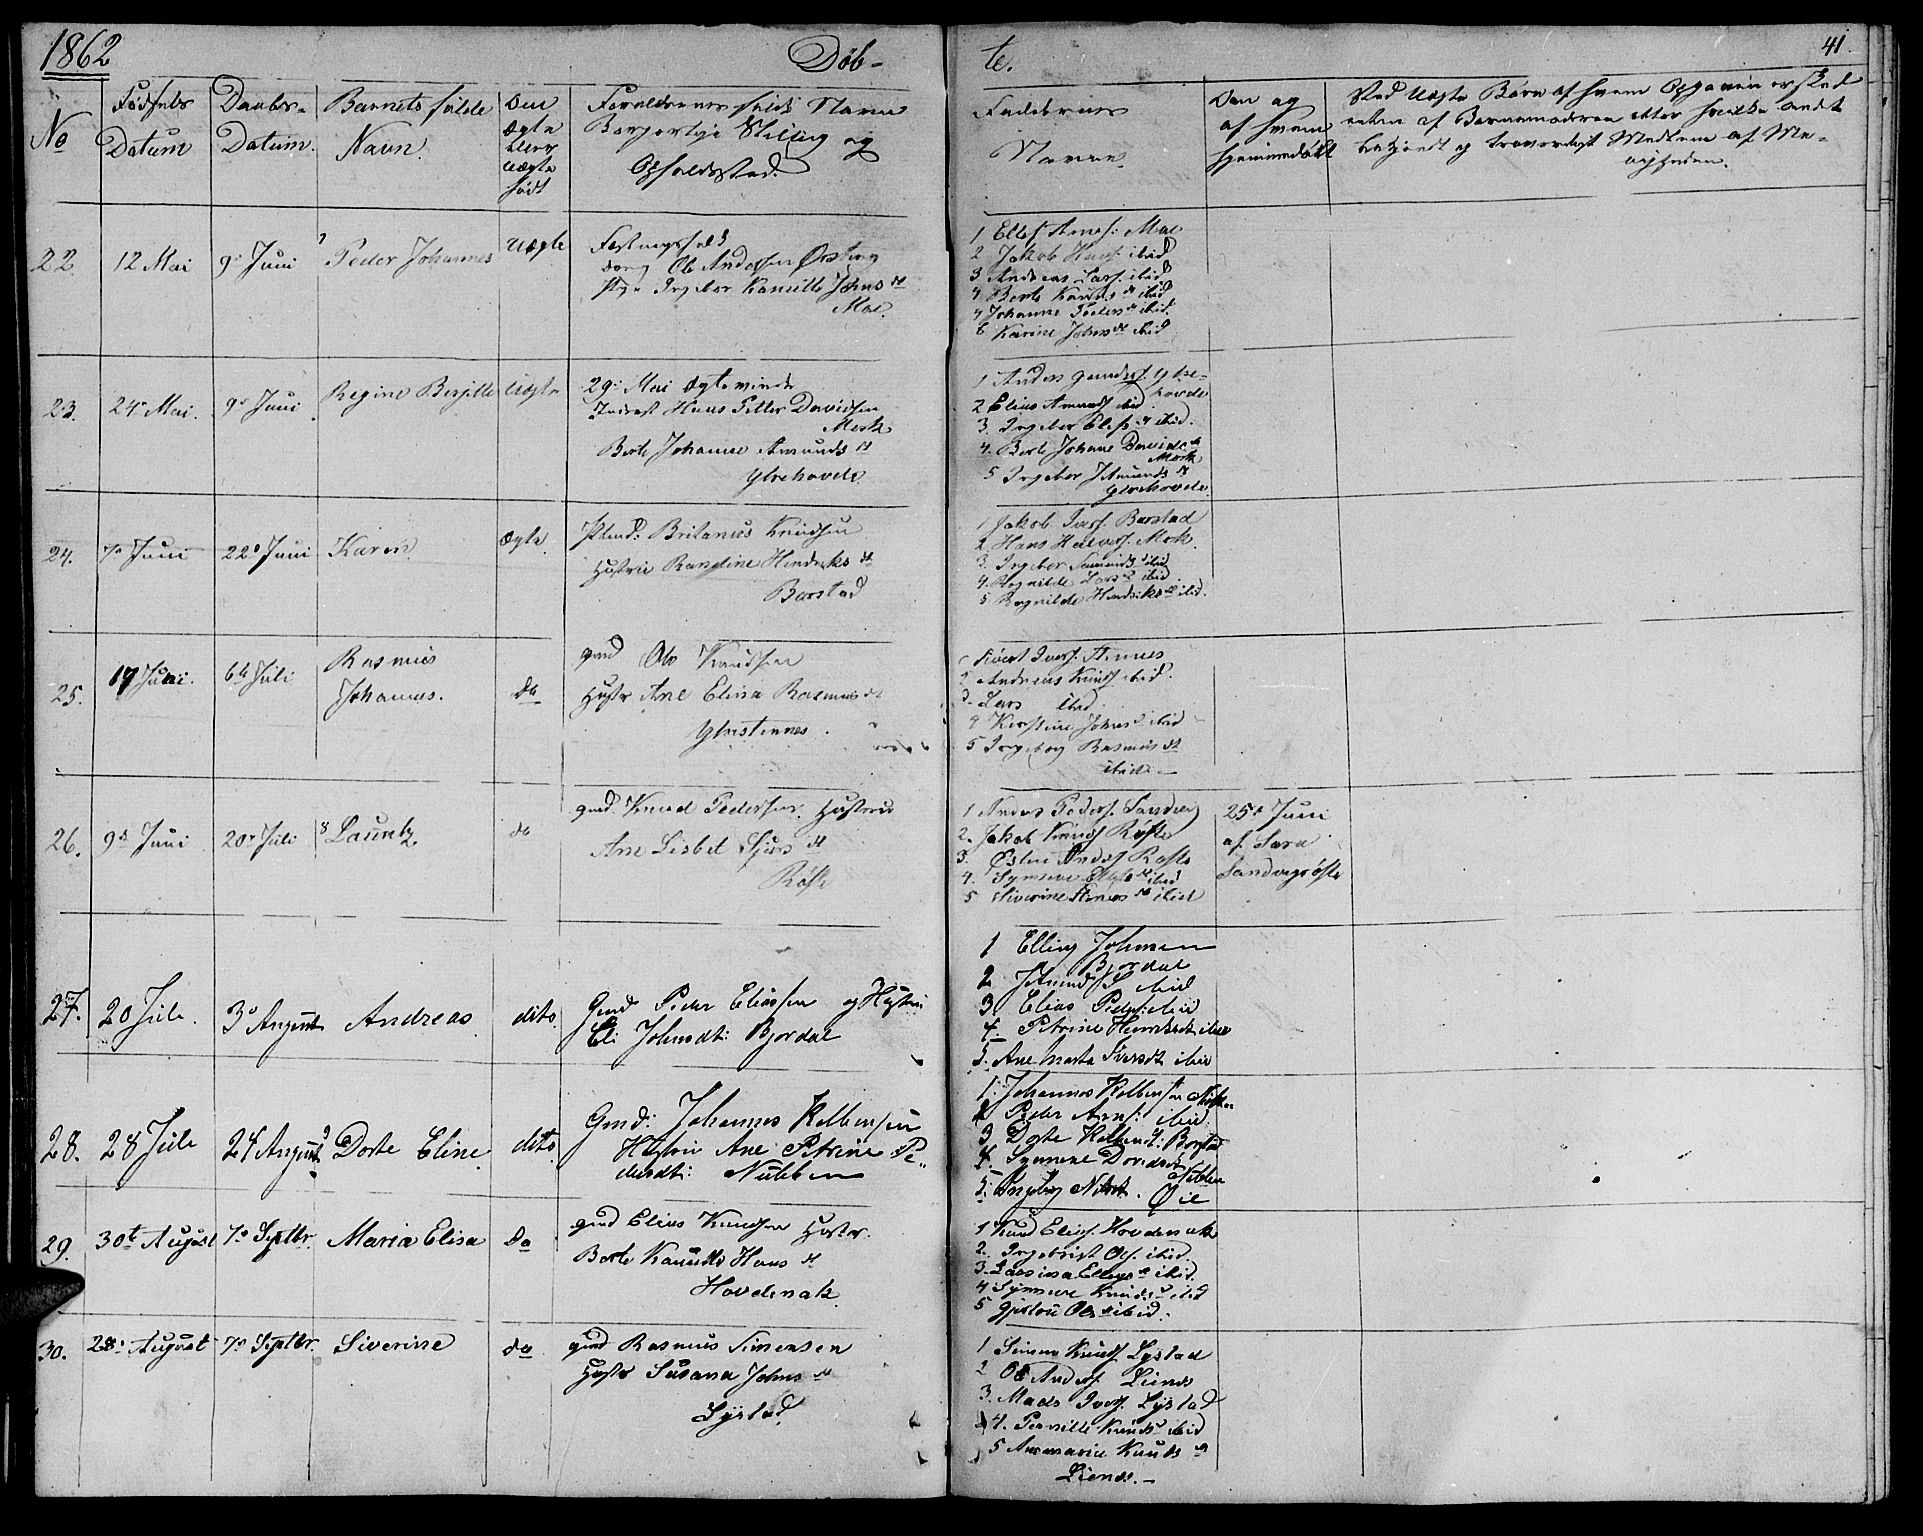 1862
Døb-
te.
41.
No
Fødsels
Datum
Daabs-
Datum.
Barnets fulde
Navn.
Om
Ægte
eller
Uægte
født
Forældrenes fulde Navn
Borgerlige Stilling og
Opholdssted.
Faddernes
Navne.
Den og
af hvem
hjemmedøbt
Ved Uægte Børn af hvem Opgaven er skeed
enten af Barnemoderen eller hvilke andet
bekjendt og troværdigt Medlem af Me-
nigheden.
22.
12 Mai
9de Juni
Peder Johannes
Uægte
Ole Andersen Ørsting
Ingebor Kanutte Johnsdt
Moe.
1 Ellef Arnes: Moe
2 Jakob ibid
3 Andreas Lars. ibid
4 Berte Knudsdt ibid
Johanne Pedersdt ibid.
6 Karine Johnsdt ibid
23.
24de Mai.
9de Juni
Regine Berjitte
Uægte
29de Mai Ægteviede
Inderst Hans Petter Davidsen
Mork
Berte Johanne Amundsdt
Ytrehovde
1 Anders Ytre-
hovde
2 Elias Amunds ibid
3. Ingebor ibid.
4. Berte Johane Davidsdt
Mork
5 Ingebor Amundsdt
Ytrehovde
24.
7de Juni
22de Juni
Karen
Ægte.
Britanus Knudsen
Hustru Randine Hendriksdt
Barstad
1 Jakob Ivers. Barstad
2 Hans Halvors. Mork
3. Ingebor ibid
4. Ragnilde Larsdt ibid
5 Ragnilde Hendriksdt ibid.
25.
17 Juni.
6te Juli
Rasmus
Johannes.
do
gmd Ole Knudsen
Hustr Ane Elisa Rasmusdt
Ytrestennes.
Sivert Ivers. Stennes
2 Andreas Knuds ibid.
3. Lars ibid
4 Kirstine Johnsdt ibid
5 Ingeborg Rasmusdt
ibid.
26.
9de Juni
20de Juli
Lauretz
do
gmd. Knud Pedersen. Hustrue
Ane Lisbet Sjursdt
Røste
1 Anders Peders. Sandvig
2. Jakob Knuds Røste
3. Østen Anders Røste
4. Synneve ibid
5 Siverine ibid
25de Juni
af Sara
Sandvigrøste
27.
20 Jule.
3de August
Andreas
dito.
Gmd Peder Eliassen og Hustru
Eli Johnsdt: Bjordal
1 Elling Johnsen
Bjordal
2 ibid
3 Elias Peders: ibid
4. Petrine Henriksdt ibid
5. Ane Marta Iversdt ibid
28.
28 Jule
24 August
Dorte Eline
dito
Gmd: Johannes Kolbensen
Hustru Ane Petrine Pe-
dersdt: Nubben
1. Johannes Kolbensen
2 Peder Arns: ibid
3 Dorte Kolbensdt: Barstad
4. Synneve Davidsdt
Nubben
5. Ingeborg Øie
29.
30te August
7de Septbr.
Maria Elisa
do
gmd Elias Knudsen Hustr.
Berte Kanutte Hansdt
Hovdenak
1 Knud Elias. Hovdenak
2. Ingebrigt Ols. ibid.
3. Lassina Ellingsdt ibid.
4 Synneve Knudsdt ibid
5 Gjertru Olsdt ibid.
30.
28de August
7de Septbr.
Siverine
do
gmd Rasmus Simensen
Hustr Susana Johnsdt
Lystad.
1 Simen Knuds Lystad
2 Ole Anders. Lienes
3. Mads Ivers. Lystad
4. Pernille Knudsdt ibid
5 Annemarie Knudsdt
Lienes.